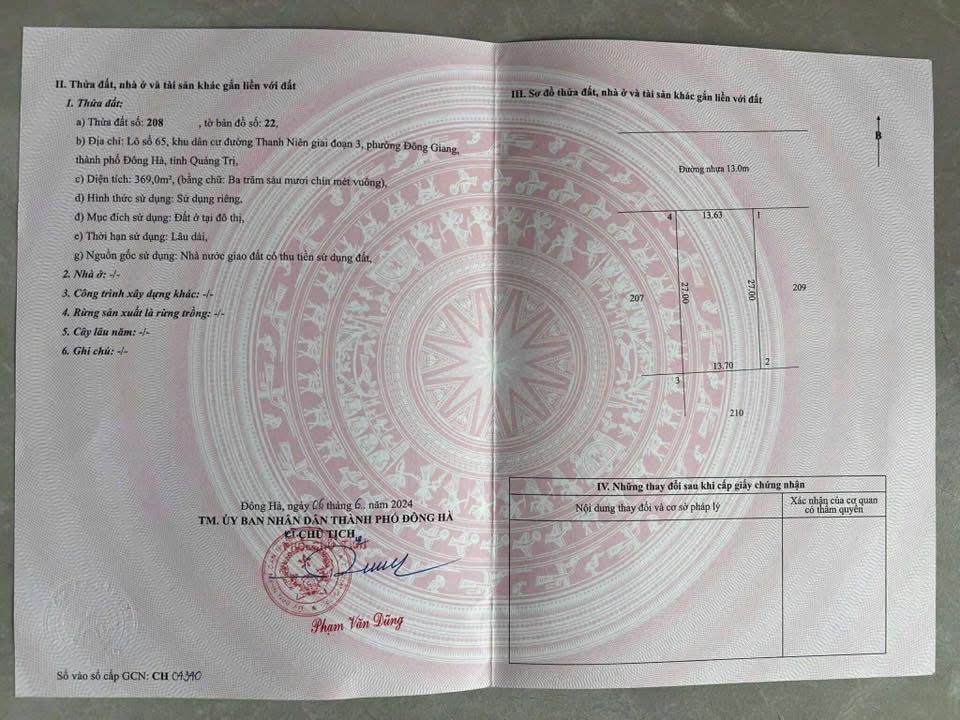 II. Thửa đất, nhà ở và tài sản khác gắn liền với đất
1. Thửa đất:
a) Thửa đất số: 208 , tờ bản đồ số: 22,
b) Địa chỉ: Lô số 65, khu dân cư đường Thanh Niên giai đoạn 3, phường Đông Giang,
thành phố Đông Hà, tỉnh Quảng Trị,
c) Diện tích: 369,0m², (bằng chữ: Ba trăm sáu mươi chín mét vuông),
d) Hình thức sử dụng: Sử dụng riêng,
đ) Mục đích sử dụng: Đất ở tại đô thị,
e) Thời hạn sử dụng: Lâu dài,
g) Nguồn gốc sử dụng: Nhà nước giao đất có thu tiền sử dụng đất,
2. Nhà ở: -/-
3. Công trình xây dựng khác: -/-
4. Rừng sản xuất là rừng trồng: -/-
5. Cây lâu năm: -/-
6. Ghi chú: -/-
Đông Hà, ngày 06 tháng 6.. năm 2024
TM. ỦY BAN NHÂN DÂN THÀNH PHỐ ĐÔNG HÀ
KT CHỦ TỊCH
Phạm Văn Dũng
Số vào sổ cấp GCN: CH 04340
III. Sơ đồ thửa đất, nhà ở và tài sản khác gắn liền với đất
B
Đường nhựa 13.0m
4 13.63 1
27.00 27.00
207 209
13.70 2
3
210
IV. Những thay đổi sau khi cấp giấy chứng nhận
Nội dung thay đổi và cơ sở pháp lý
Xác nhận của cơ quan
có thẩm quyền